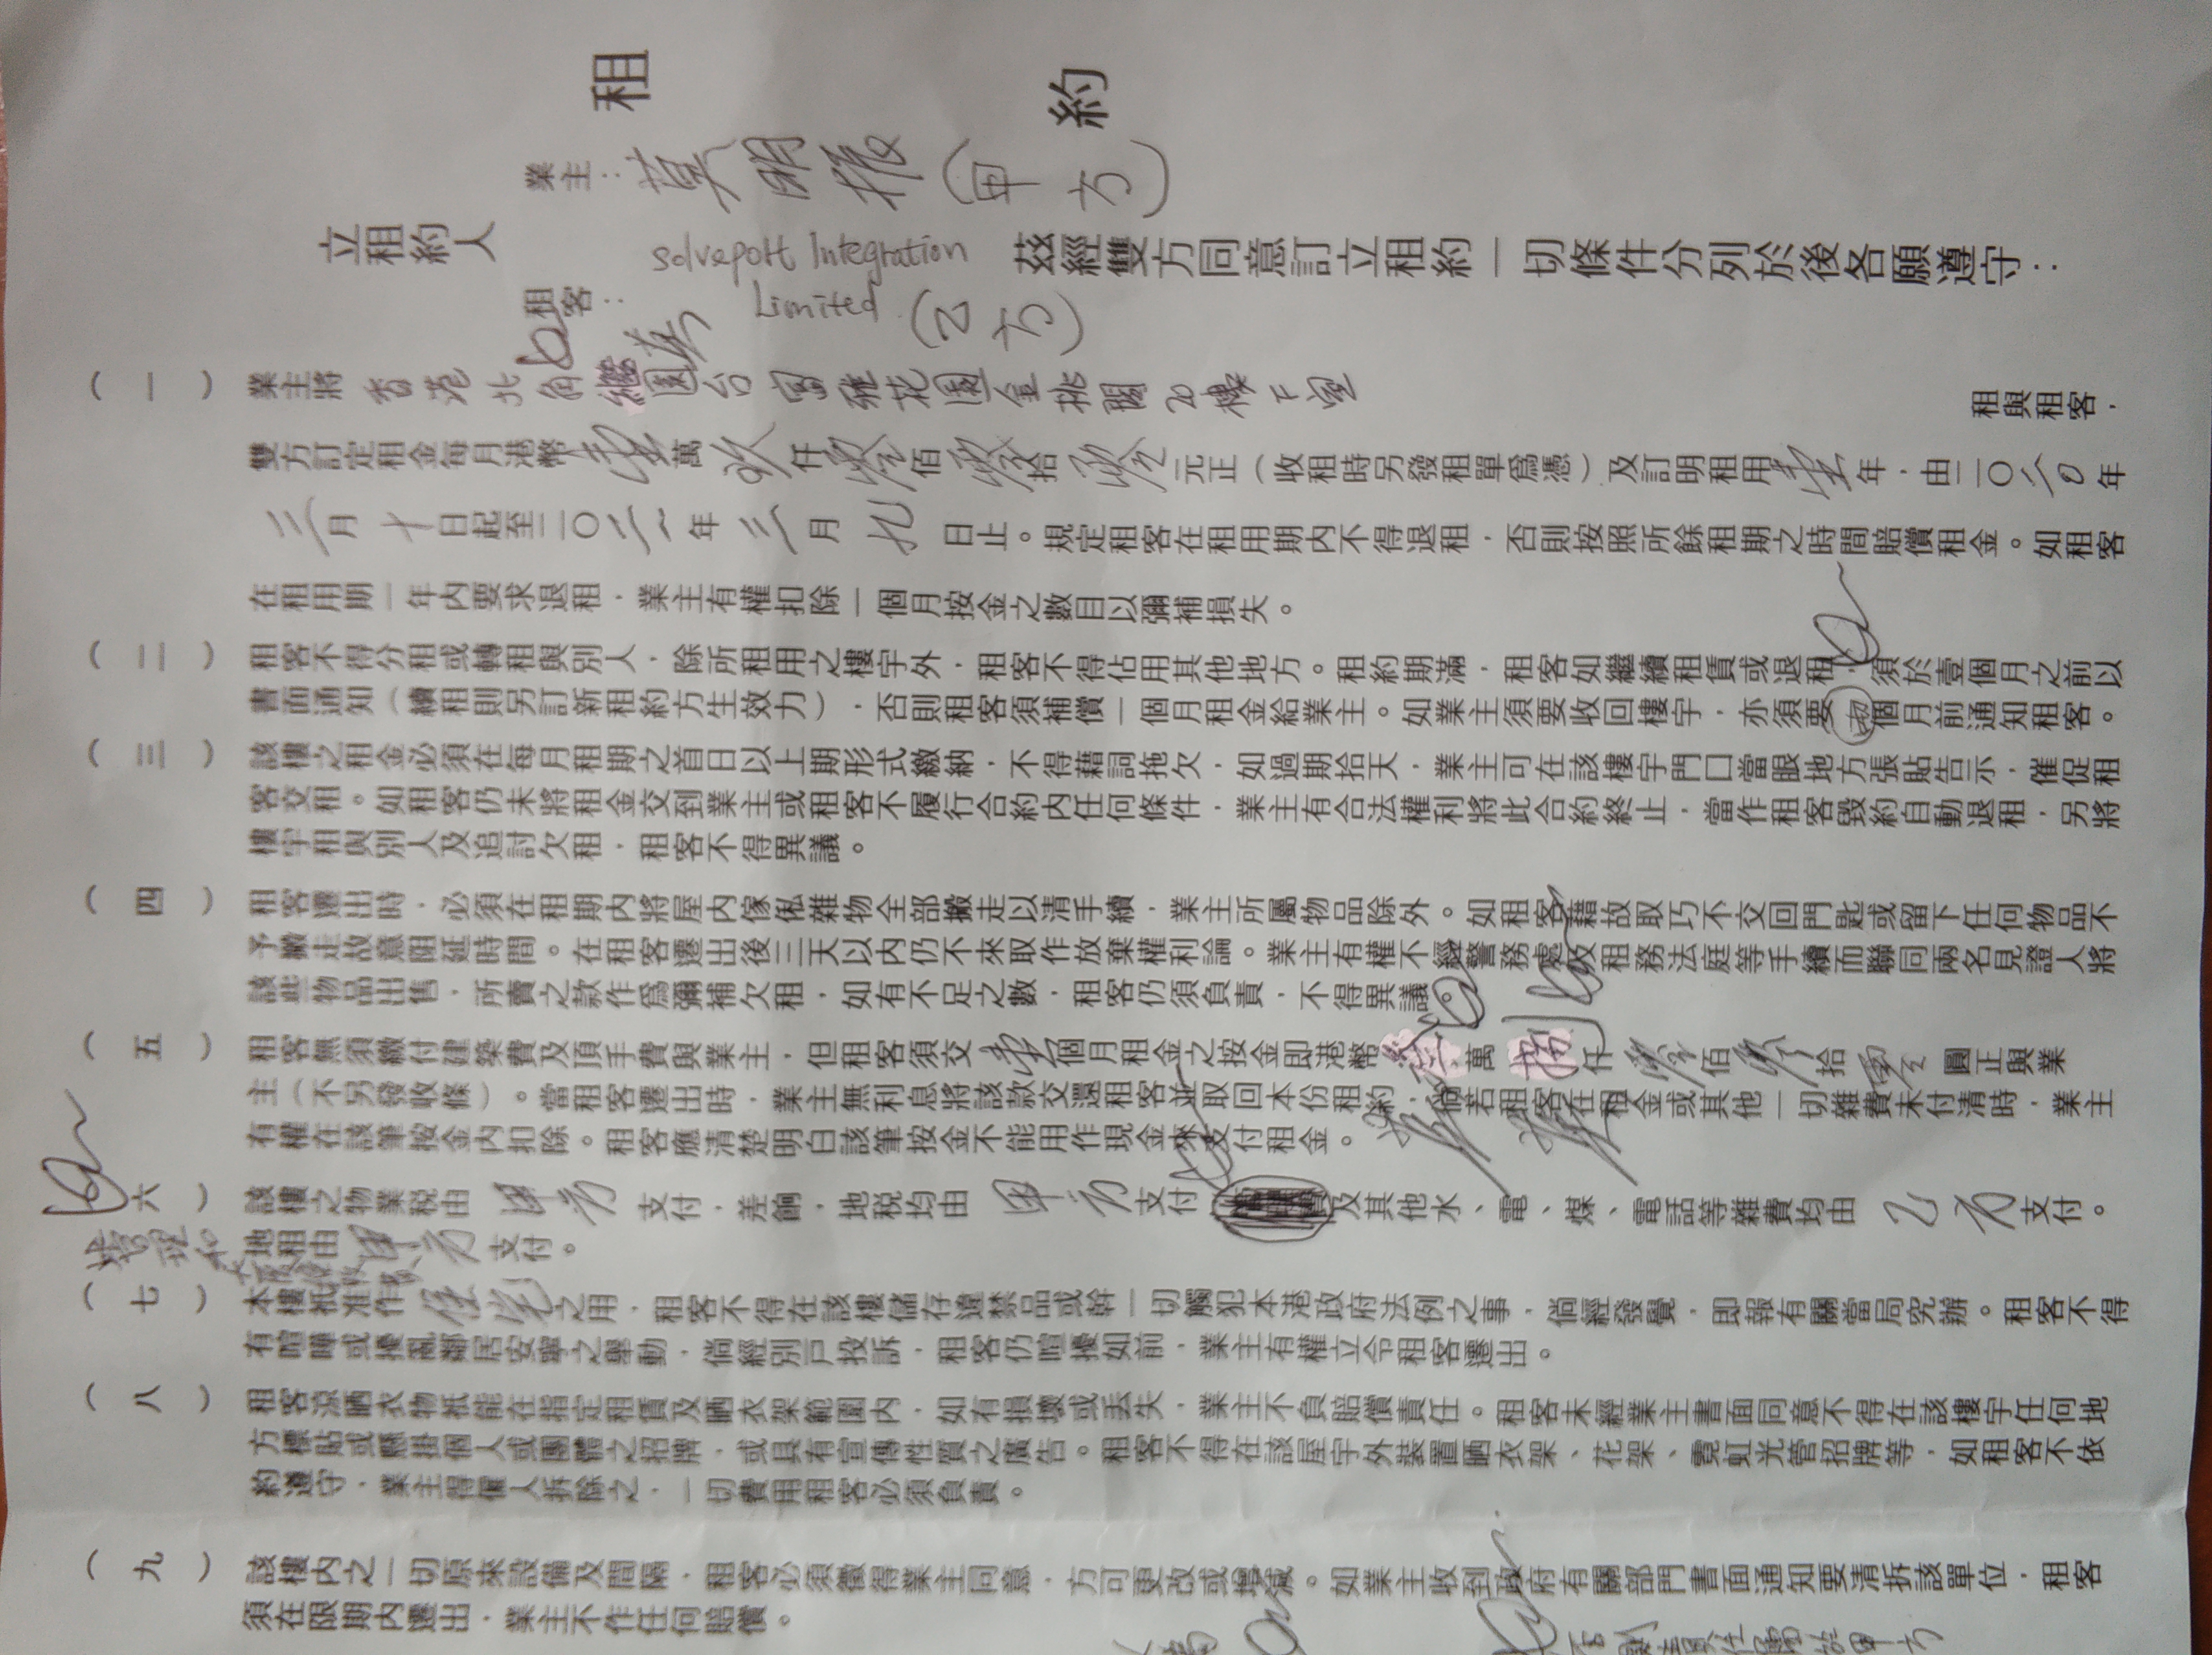 租約
業主：莫明雅（甲方）
立租約人 茲經雙方同意訂立租約一切條件分列於後各願遵守：
租客：Solveport Integration Limited（乙方）
（一） 業主將香港北角繼園台富雅花園金桃閣20樓F室 租與租客，
雙方訂定租金每月港幣壹萬玖仟零佰零拾零元正（收租時另發租單爲憑）及訂明租用壹年，由二〇二0年
三月十日起至二〇二一年三月九日止。規定租客在租用期內不得退租，否則按照所餘租期之時間賠償租金。如租客
在租用期一年內要求退租，業主有權扣除一個月按金之數目以彌補損失。
（二） 租客不得分租或轉租與別人，除所租用之樓宇外，租客不得佔用其他地方。租約期滿，租客如繼續租賃或退租，須於壹個月之前以
書面通知（續租則另訂新租約方生效力），否則租客須補償一個月租金給業主。如業主須要收回樓宇，亦須要個月前通知租客。
（三） 該樓之租金必須在每月租期之首日以上期形式繳納，不得藉詞拖欠，如過期拾天，業主可在該樓宇門口當眼地方張貼告示，催促租
客交租。如租客仍未將租金交到業主或租客不履行合約內任何條件，業主有合法權利將此合約終止，當作租客毀約自動退租，另將
樓宇租與別人及追討欠租，租客不得異議。
（四） 租客遷出時，必須在租期內將屋內傢俬雜物全部搬走以清手續，業主所屬物品除外。如租客藉故取巧不交回門匙或留下任何物品不
予搬走故意阻延時間。在租客遷出後三天以內仍不來取作放棄權利論。業主有權不經警務處及租務法庭等手續而聯同兩名見證人將
該些物品出售，所賣之款作爲彌補欠租，如有不足之數，租客仍須負責，不得異議
（五） 租客無須繳付建築費及頂手費與業主，但租客須交個月租金之按金即港幣萬仟零佰零拾零圓正與業
主（不另發收條）。當租客遷出時，業主無利息將該款交還租客並取回本份租約，倘若租客在租金或其他一切雜費未付清時，業主
有權在該筆按金內扣除。租客應清楚明白該筆按金不能用作現金來支付租金。
六） 該樓之物業稅由甲方支付，差餉，地稅均由甲方支付及其他水、電、煤、電話等雜費均由乙方支付。
管理和地租由甲方支付。
（七） 本樓祇准作住宅之用，租客不得在該樓儲存違禁品或幹一切觸犯本港政府法例之事，倘經發覺，即報有關當局究辦。租客不得
有喧嘩或擾亂鄰居安寧之舉動，倘經別戶投訴，租客仍喧擾如前，業主有權立令租客遷出。
（八） 租客涼晒衣物祇能在指定租賃及晒衣架範圍內，如有損壞或丟失，業主不負賠償責任。租客未經業主書面同意不得在該樓宇任何地
方標貼或懸掛個人或團體之招牌，或具有宣傳性質之廣告。租客不得在該屋宇外裝置晒衣架、花架、霓虹光管招牌等，如租客不依
約遵守，業主得僱人拆除之，一切費用租客必須負責。
（九） 該樓內之一切原來設備及間隔，租客必須徵得業主同意，方可更改或增減。如業主收到政府有關部門書面通知要清拆該單位，租客
須在限期內遷出，業主不作任何賠償。